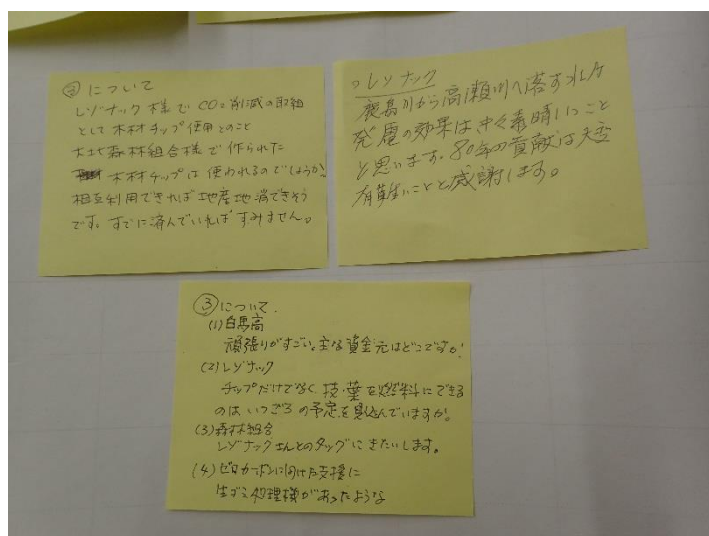 ②について
レゾナック様でCO2削減の取組
として木材チップ使用とのこと
大北森林組合様で作られた
木材チップは使われるのでしょうか?
相互利用できれば地産地消できそう
です。すでに済んでいればすみません。
レゾナック
鹿島川から高瀬川へ落す水力
発電の効果は、中々素晴しいこと
と思います。80年の貢献は大変
有難いことと感謝します。
③について.
(1)白馬高
頑張りがすごい。主な資金元はどこですか?
(2)レゾナック
チップだけでなく、枝・葉を燃料にできる
のはいつごろの予定を見込んでいますか。
(3)森林組合
レゾナックさんとのタッグにきたいします。
(4)ゼロカーボンに向けた支援に
生ゴミ処理機があったような